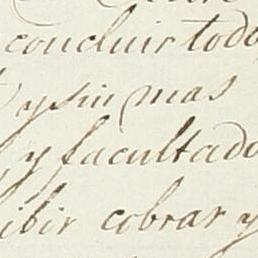 concluir todo
y sin mas
y facultado
ibir cobrar y